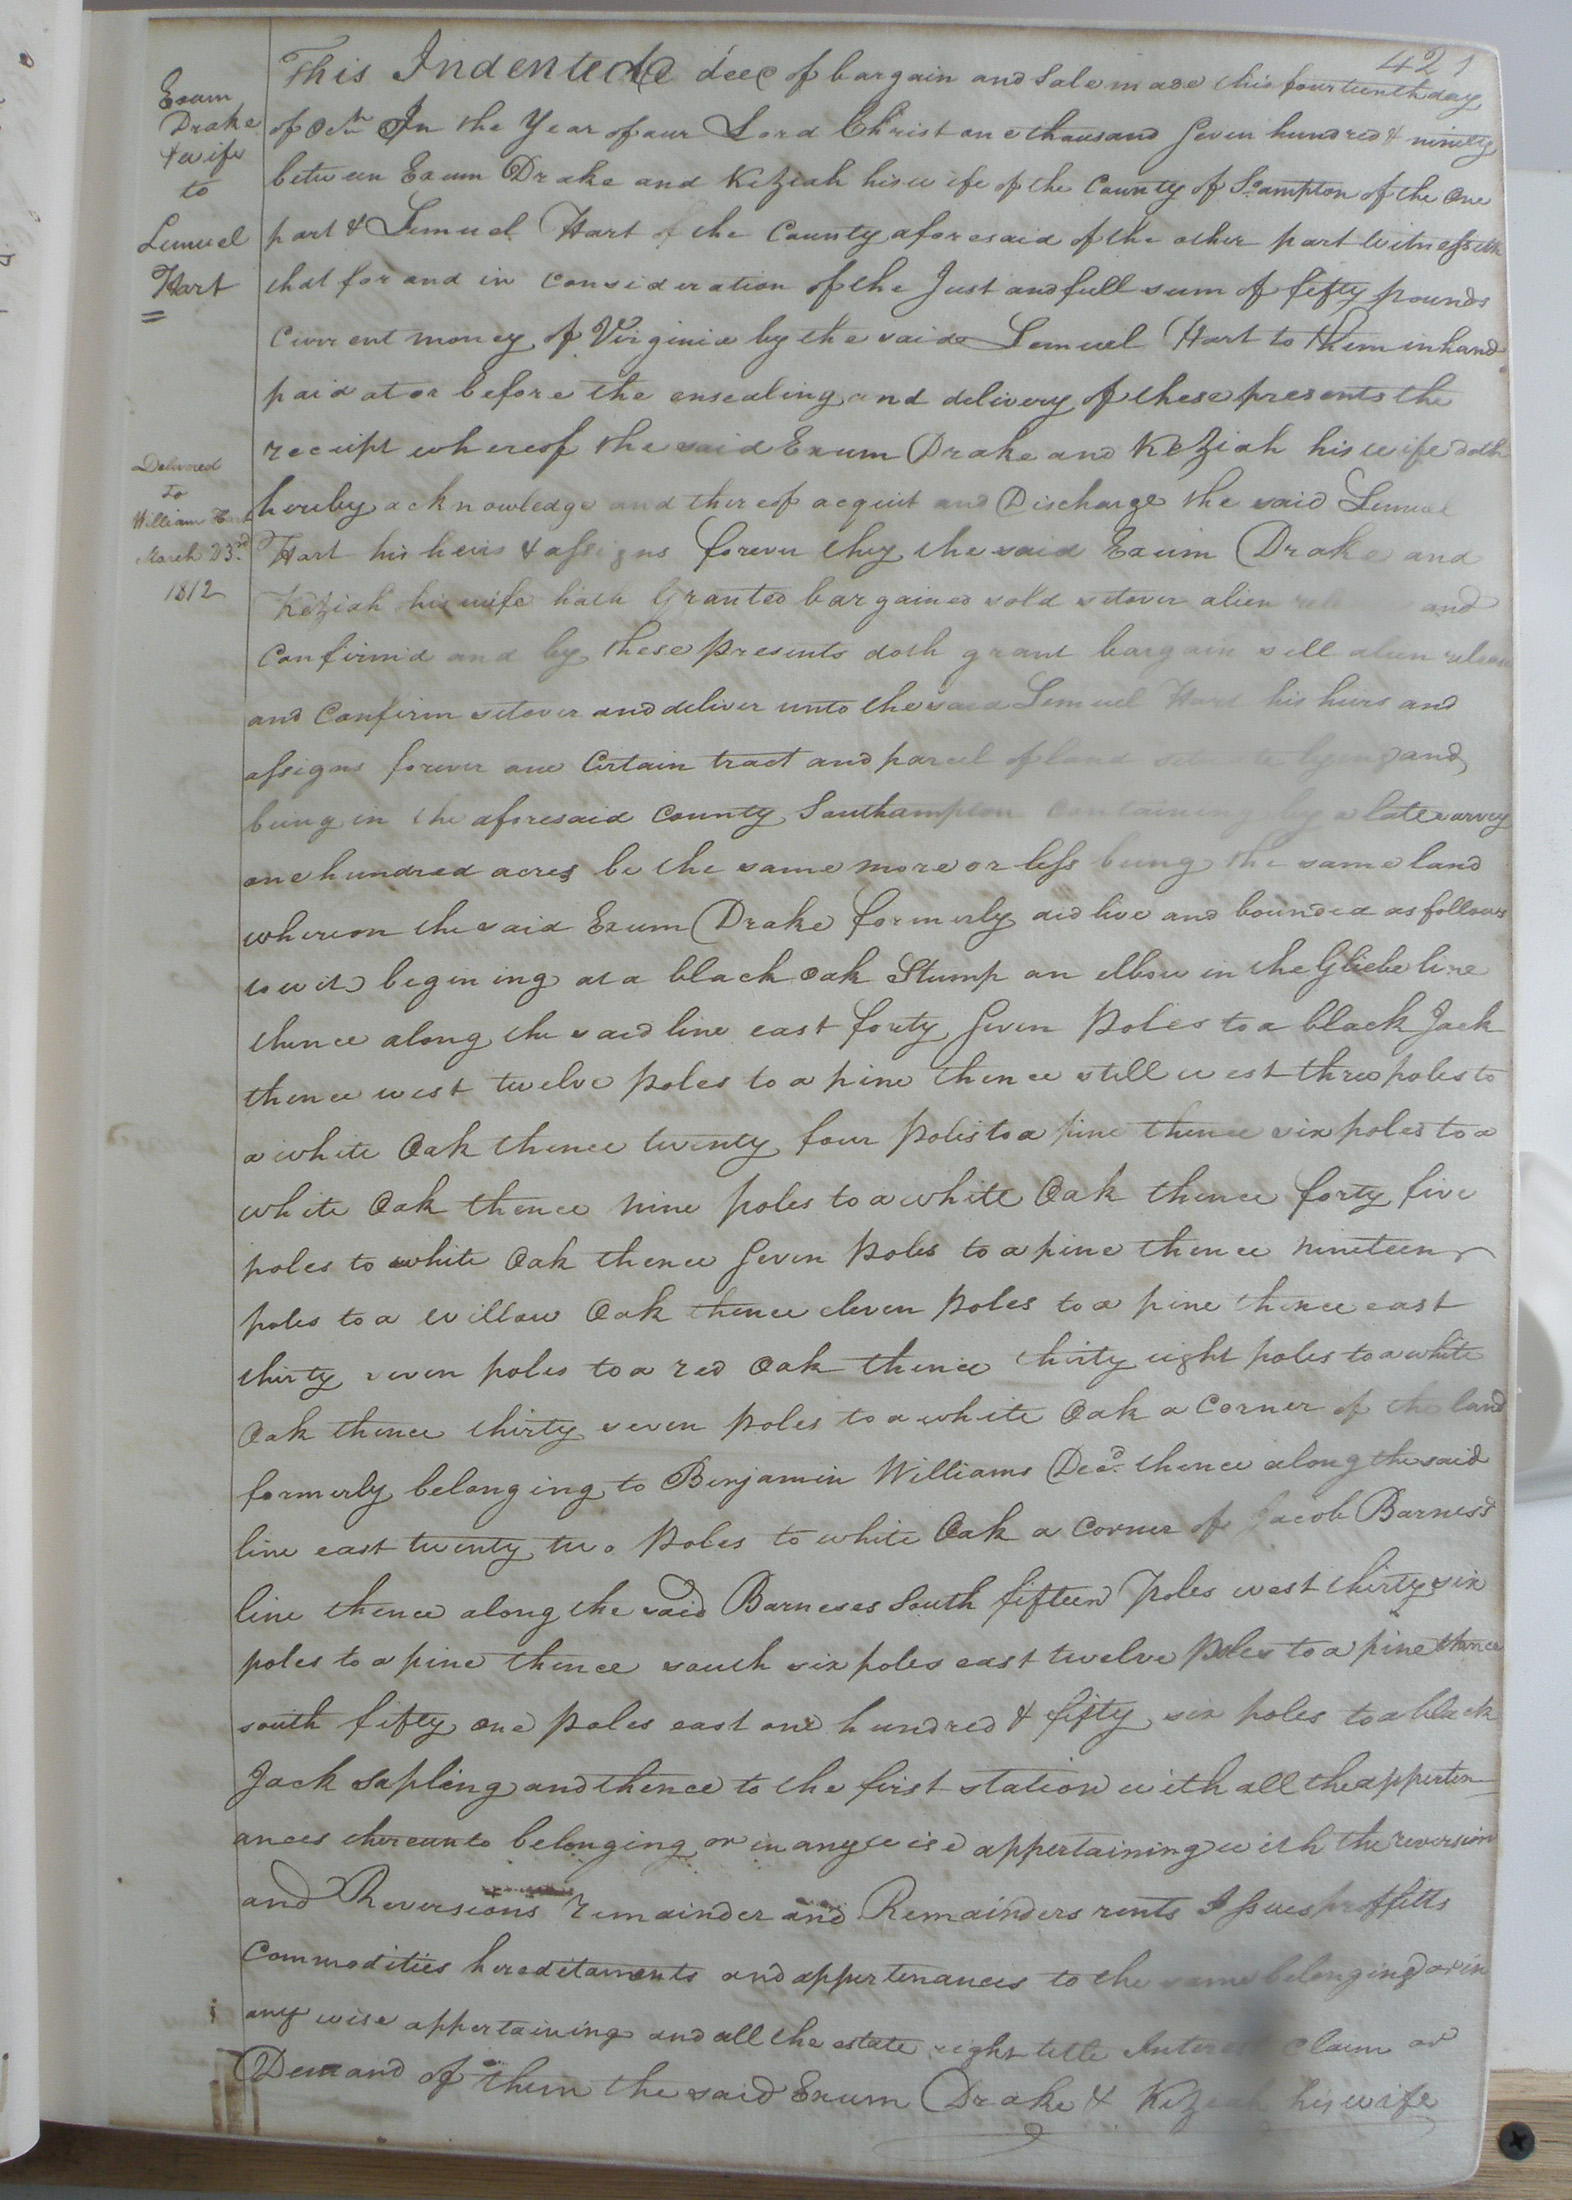 421
Exum
Drake
& wife
to
Lemuel
Hart
=
Delivered
To
William Hart
March 23rd
1812
This Indented deed of bargain and Sale made this fourteenth day
of Octr In the Year of our Lord Christ one thousand Seven hundred & ninety
between Exum Drake and Keziah his wife of the County of So.ampton of the One
part & Lemuel Hart of the County aforesaid of the other part Witnesseth
that for and in Consideration of the Just and full sum of fifty pounds
Current money of Virginia by the said Lemuel Hart to them in hand
paid at or before the ensealing and delivery of these presents the
receipt whereof the said Exum Drake and Keziah his wife doth
hereby acknowledge and thereof acquit and Discharge the said Lemuel
Hart his heirs & assigns forever they the said Exum Drake and
Keziah his wife hath Granted bargained sold setover alien and
Confirm'd and by these presents doth grant bargain sell alien release
and Confirm setover and deliver unto the said Lemuel Hart his heirs and
assigns forever one Certain tract and parcel of land situate lying and
being in the aforesaid County Southampton Containing by a late survey
one hundred acres be the same more or less being the same land
whereon the said Exum Drake formerly did live and bounded as follows
towit begining at a black oak Stump an elbow in the Gliebe line
thence along the said line east forty Seven Poles to a black Jack
thence west twelve poles to a pine thence still west three poles to
a white Oak thence twenty four Poles to a pine thence six poles to a
white Oak thence nine poles to a white Oak thence forty five
poles to white Oak thence Seven Poles to a pine thence nineteen
poles to a Willow Oak thence eleven Poles to a pine thence east
thirty seven poles to a red Oak thence thirty eight poles to a white
Oak thence thirty seven Poles to a white Oak a Corner of the land
formerly belonging to Benjamin Williams Decd. thence along the said
line east twenty two Poles to white Oak a Corner of Jacob Barness's
line thence along the said Barneses South fifteen Poles west thirty six
poles to a pine thence south six poles east twelve Poles to a pine thence
south fifty one Poles east one hundred & fifty six poles to a black
Jack Sapling and thence to the first station with all the apperten-
ances thereunto belonging or in anywise appertaining with the reversion
and Reversions remainder and Remainders rents Issues proffitts
Commodities hereditaments and appertenances to the same belonging or in
any wise appertaining and all the estate right title Interest Claim or
Demand of them the said Exum Drake & Keziah his wife